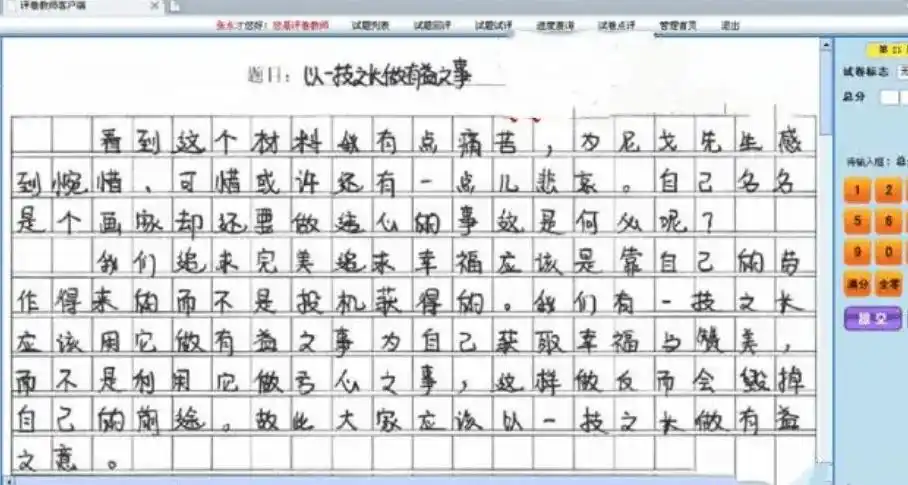 评卷教师客户端
张永才您好！您是评卷教师 试题列表 试题回评 试题试评 进度查询 试卷点评 管理首页 退出
题目：以一技之长做有益之事
第25
试卷标志
总分
看到这个材料我有点痛苦，为尼戈先生感
到惋惜、可惜或许还有一点儿悲哀。自己名名
是个画家却还要做违心的事这是何必呢？
我们追求完美追求幸福应该是靠自己的劳
作得来的而不是投机获得的。我们有一技之长
应该用它做有益之事为自己获取幸福与赞美，
而不是利用它做亏心之事，这样做反而会毁掉
自己的前途。故此大家应该以一技之长做有益
之意。
待输入框：总
1 2
5 6
9 0
满分 全零
提交